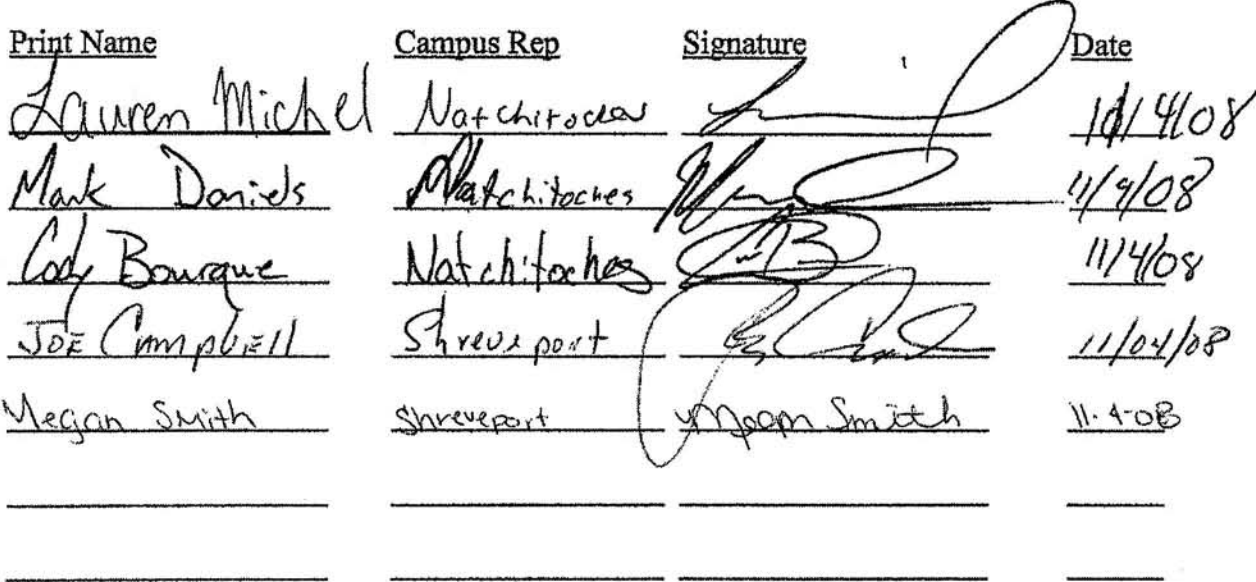 Print Name Campus Rep Signature Date
Lauren Michel Natchitoches 11/4/08
Mark Daniels Natchitoches 11/4/08
Cody Bourque Natchitoches 11/4/08
JOE CAMPBELL Shreveport 11/04/08
Megan Smith Shreveport Megan Smith 11-4-08